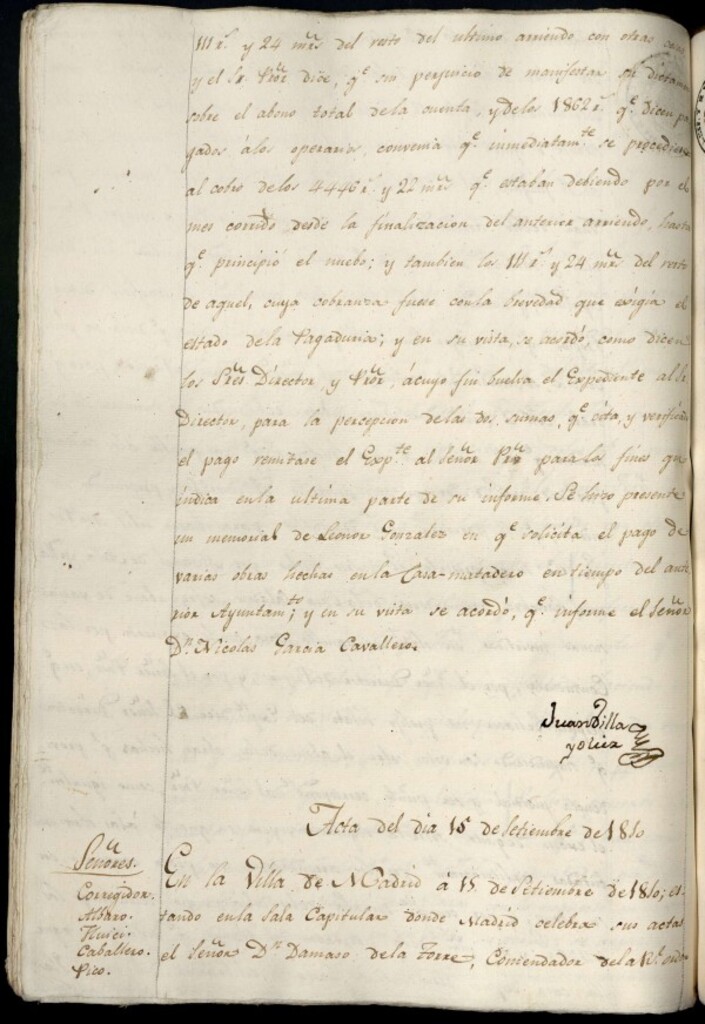 111 rs. y 24 mrs. del resto del ultimo arriendo con otras cosas
y el Sr. Vior dice, qe. sin perjuicio de manifestar su dictamen
sobre el abono total dela cuenta, y delos 1862 rs. qe. dicen pa
gados álos operarios, convenia qe. inmediatamte. se procediera
al cobro delos 4446 rs. y 22 mrs. qe. estaban debiendo por el
mes corrido desde la finalizacion del anterior arriendo, hasta
qe. principió el nuebo; y tambien los 111 rs. y 24 mrs. del resto
de aquel, cuya cobranza fuese conla brevedad que exîgia el
estado dela Pagaduria; y en su vista, se acordó, como dicen
los Sres. Director, y Vior, ácuyo fin buelva el Expediente al Sr.
Director, para la percepcion delas dos sumas, qe. cita, y verificado
el pago remitase el Expte. al Señor para los fines que
indica enla ultima parte de su informe. Se hizo presente
un memorial de Leonor Gonzalez en qe. solicita el pago de
varias obras hechas enla Casa-matadero en tiempo del ante
rior Ayuntamto; y en su vista se acordó, qe. informe el Señor
Dn. Nicolas Garcia Cavallero.
Juan Villa
y Olier
Acta del dia 15 de Setiembre de 1810
Señores.
Corregidor.
Albaro.
Huici.
Caballero.
Pico.
En la Villa de Madrid á 15 de Setiembre de 1810; es
tando enla Sala Capitular donde Madrid celebra sus actas
el Señor Dn. Damaso dela Torre, Comendador dela Rl. orden